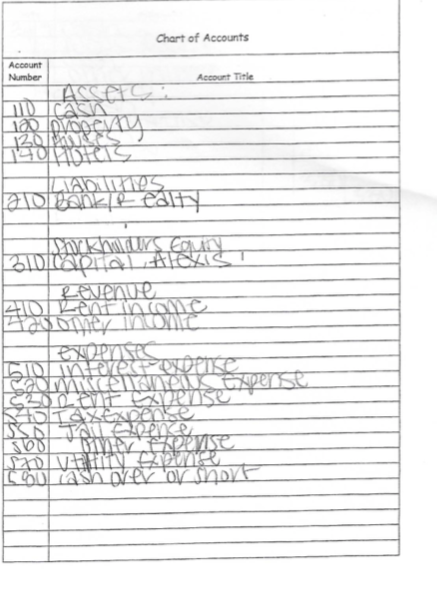 Chart of Accounts
Account Number Account Title
Assets:
110 Cash
120 property
130 Houses
140 Hotels
Liabilities
210 Bank/Realty
Stockholders Equity
310 Capital, Alexis
Revenue
410 Rent income
420 other income
expenses
510 interest expense
520 miscellaneous Expense
530 Rent Expense
540 Tax Expense
550 Jail Expense
560 Other Expense
570 Utility Expense
580 Cash over or short